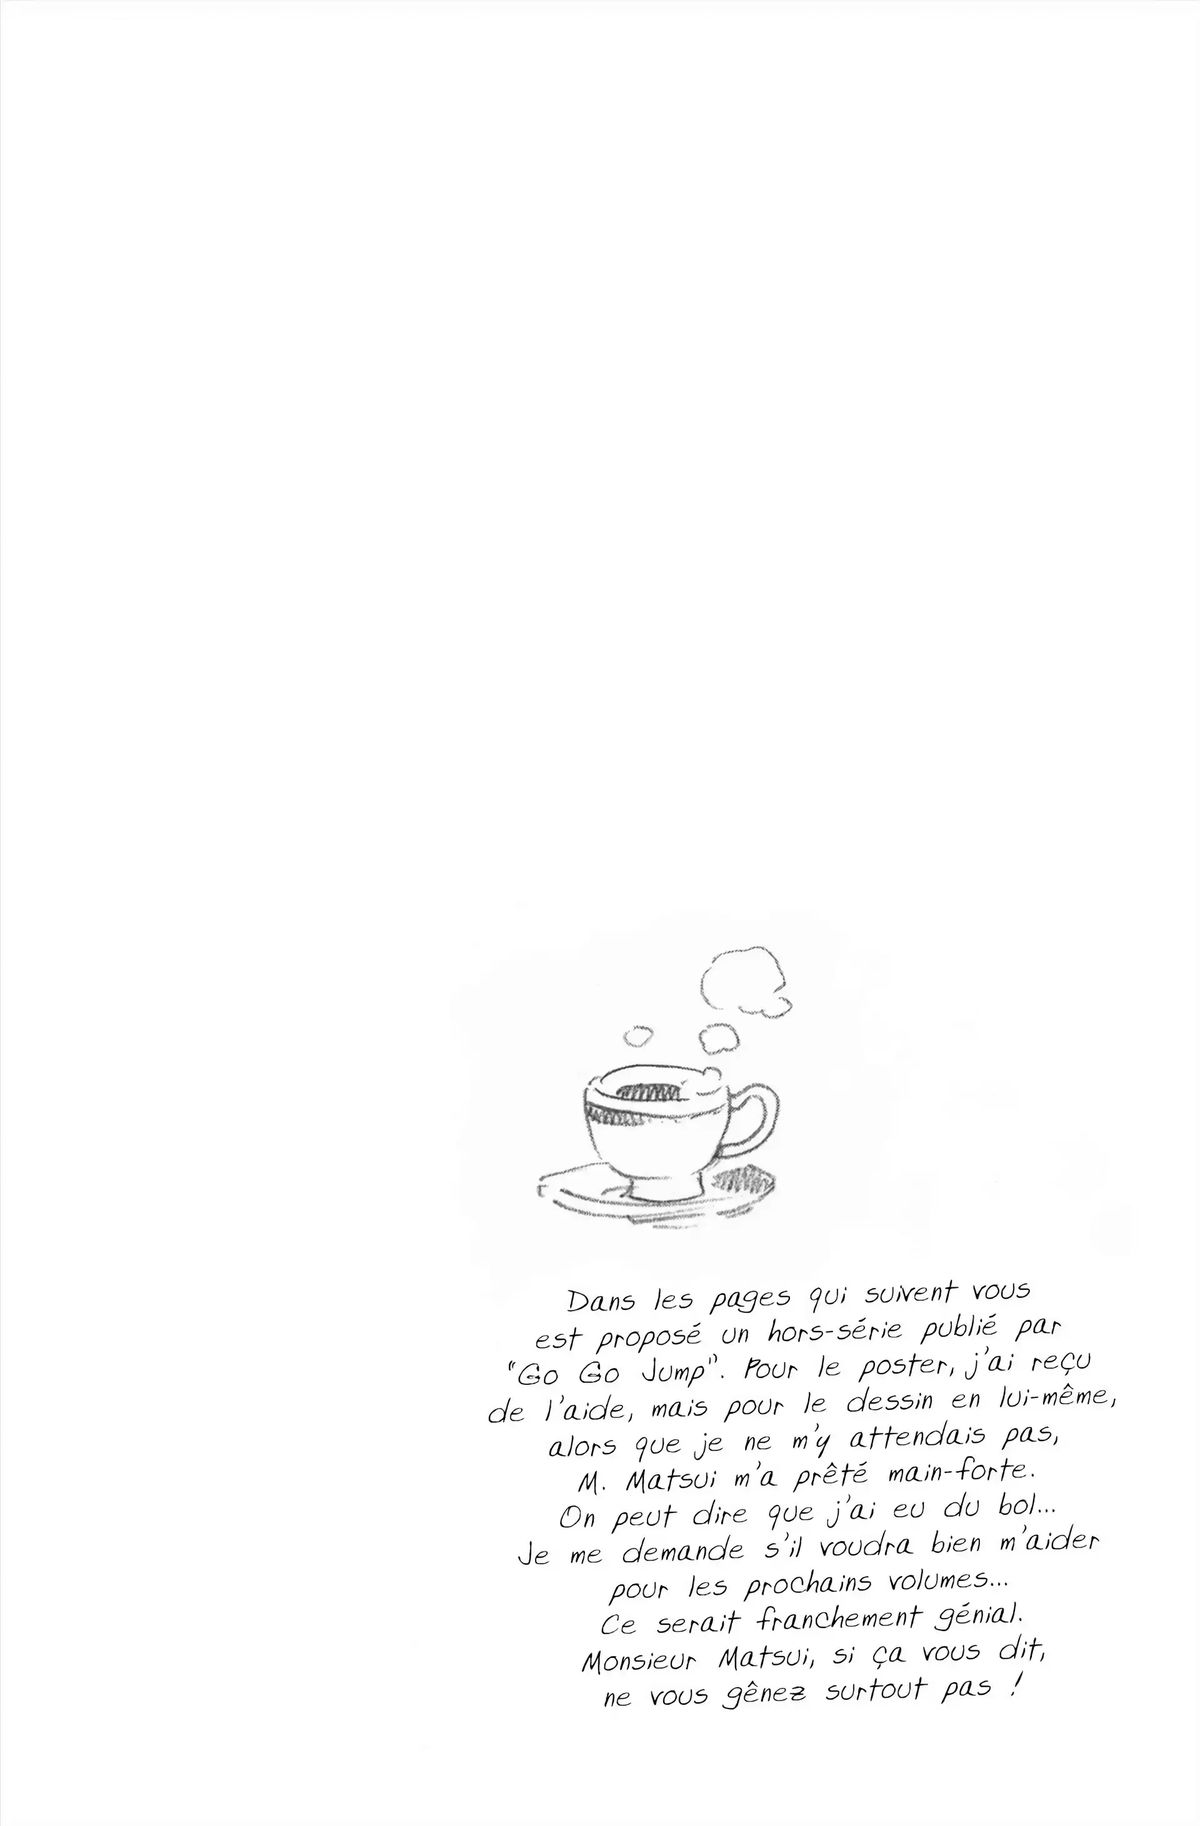 Dans les pages qui suivent vous
est proposé un hors-série publié par
"Go Go Jump". Pour le poster, j'ai reçu
de l'aide, mais pour le dessin en lui-même,
alors que je ne m'y attendais pas,
M. Matsui m'a prêté main-forte.
On peut dire que j'ai eu du bol...
Je me demande s'il voudra bien m'aider
pour les prochains volumes...
Ce serait franchement génial.
Monsieur Matsui, si ça vous dit,
ne vous gênez surtout pas !